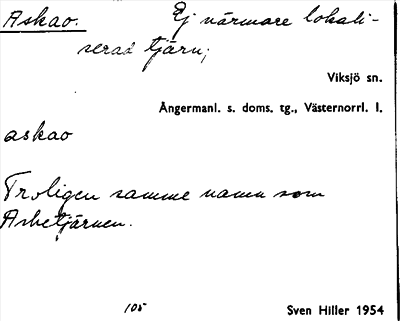 Askao. Ej närmare lokali-
serad tjärn;
Viksjö sn.
Ångermanl. s. doms. tg., Västernorrl. l.
askao
Troligen samme namn som
Asbetjärnen.
105
Sven Hiller 1954